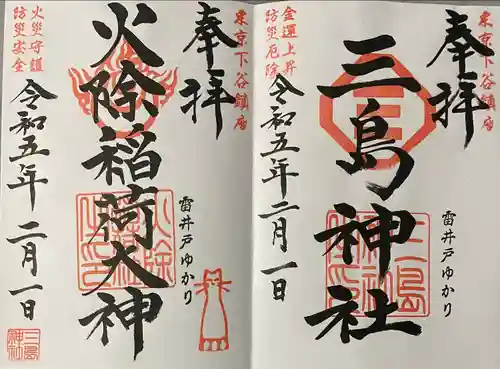 東京下谷鎮座
奉拝
三島神社
雷井戸ゆかり
金運上昇
防災厄除
令和五年二月一日
東京下谷鎮座
奉拝
火除稲荷大神
雷井戸ゆかり
火災守護
防災安全
令和五年二月一日
三島
神社